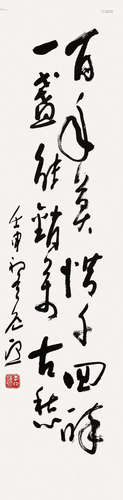 百年莫惜千回醉
一盞能銷萬古愁
壬申